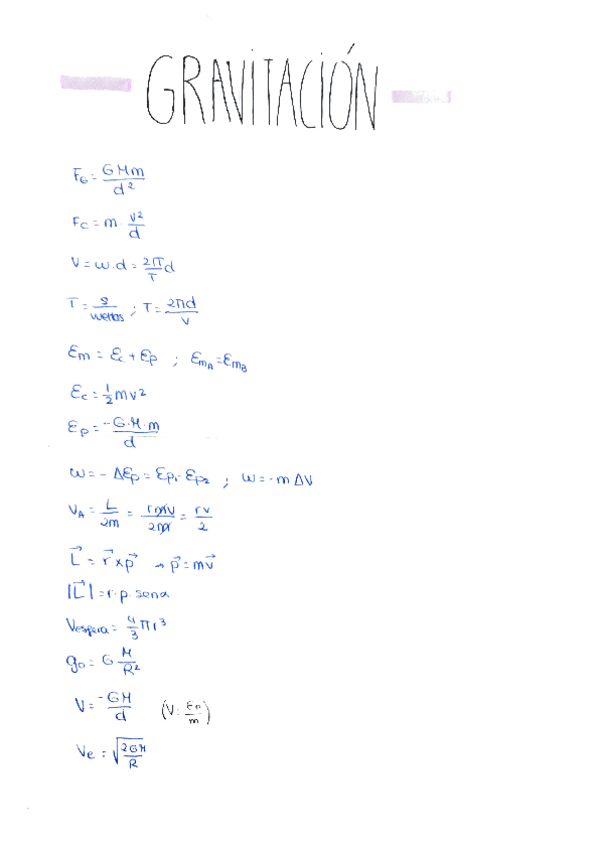 GRAVITACIÓN
F_G = GMm/d²
F_C = m · v²/d
V = ω·d = 2π/T d
T = s/vueltas ; T = 2πd/v
Em = Ec + Ep ; Em_A = Em_B
Ec = 1/2 mv²
Ep = -G·M·m/d
ω = - ΔEp = Ep₁ - Ep₂ ; ω = -m ΔV
V_A = L/2m = rmv/2m = rv/2
L⃗ = r⃗ x p⃗ → p⃗ = mv⃗
|L⃗| = r·p·senα
Vesfera = 4/3 πr³
g₀ = G M/R²
V = -GM/d (V = Ep/m)
Ve = √(2GM/R)